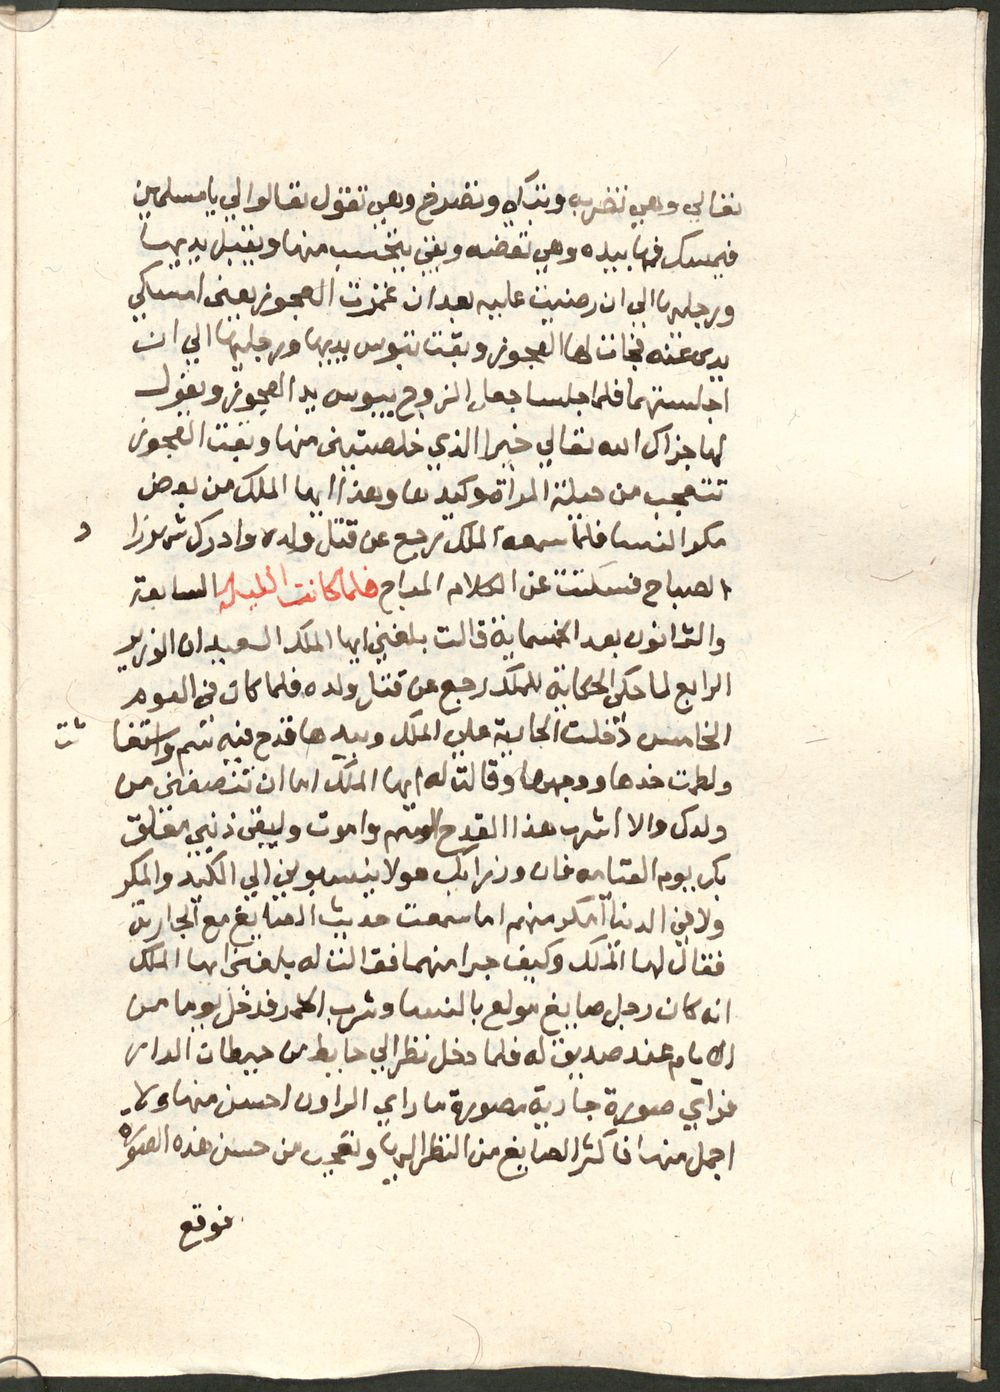 تعالي وهي تضربه وتبكي وتصرخ وهي تقول تعالوا لي يا مسلمين
فيمسك فمها بيده وهي تعضه وبقي يتحسب منها ويقبل يديها
ورجليها الي ان رضيت عليه بعد ان غمزت العجوز يعني امسكي
يدي عنه فجات لها العجوز وبقت تبوس يديها ورجليها الي ان
اجلستهما فلما جلسا جعل الزوج يبوس يد العجوز ويقول
لها جزاك الله تعالي خيرا الذي خلصتيني منها وبقت العجوز
تتعجب من حيلة المراة وكيدها وهذا ايها الملك من بعض
مكر النسا فلما سمعه الملك رجع عن قتل ولده وادرك شهرزا د
الصباح فسكتت عن الكلام المباح فلما كانت الليلة السابعة
والثمانون بعد الخمسماية قالت بلغني ايها الملك السعيد ان الوزير
الرابع لما حكي الحكاية للملك رجع عن قتل ولده فلما كان في اليوم
الخامس دخلت الجارية علي الملك وبيدها قدح فيه سم واستغا ثت
ولطمت خدها ووجهها وقالت له ايها الملك اما ان تنصفني من
ولدك والا اشرب هذا القدح السم واموت ويبقي ذنبي معلق
بك يوم القيامه فان وزرايك هولا ينسبوني الي الكيد والمكر
ولا في الدنيا امكر منهم اما سمعت حديث الصايغ مع الجارية
فقال لها الملك وكيف جرا منهما فقالت له بلغني ايها الملك
انه كان رجل صايغ مولع بالنسا وشرب الخمر فدخل يوما من
الايام عند صديق له فلما دخل نظر الي حايط من حيطان الدار
فراي صورة جارية مصورة ما راي الراون احسن منها ولا
اجمل منها فاكثر الصايغ من النظر اليها وتعجب من حسن هذه الصورة
فوقع